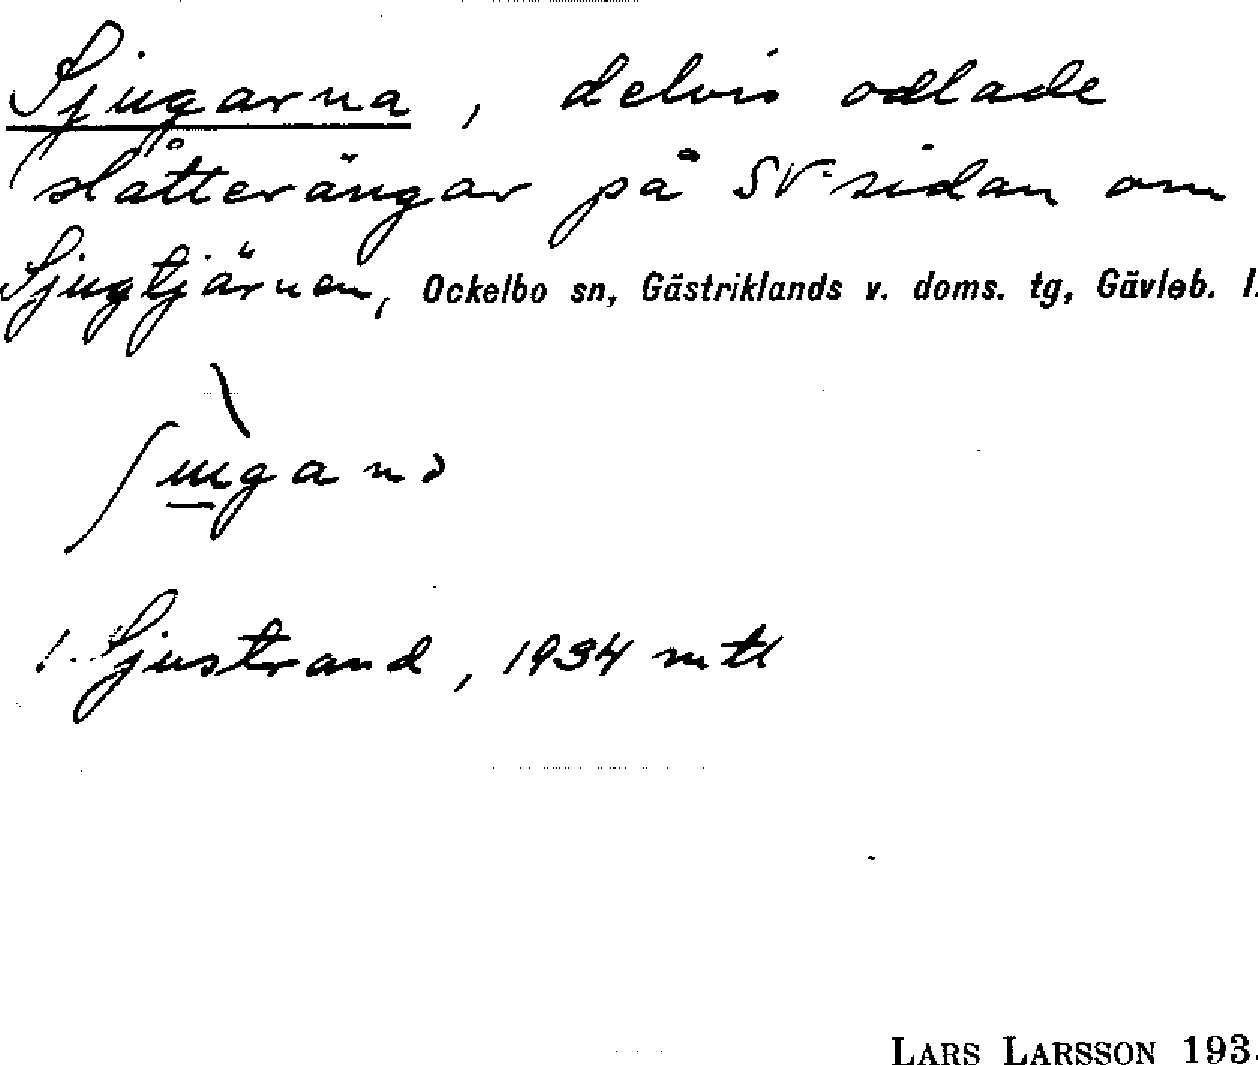 Sjugarna, delvis odlade
slåtterängar på SV-sidan om
Sjugtjärnen, Ockelbo sn, Gästriklands v. doms. tg, Gävleb. l.
1. Sjustrand, 1934 mtl
LARS LARSSON 193